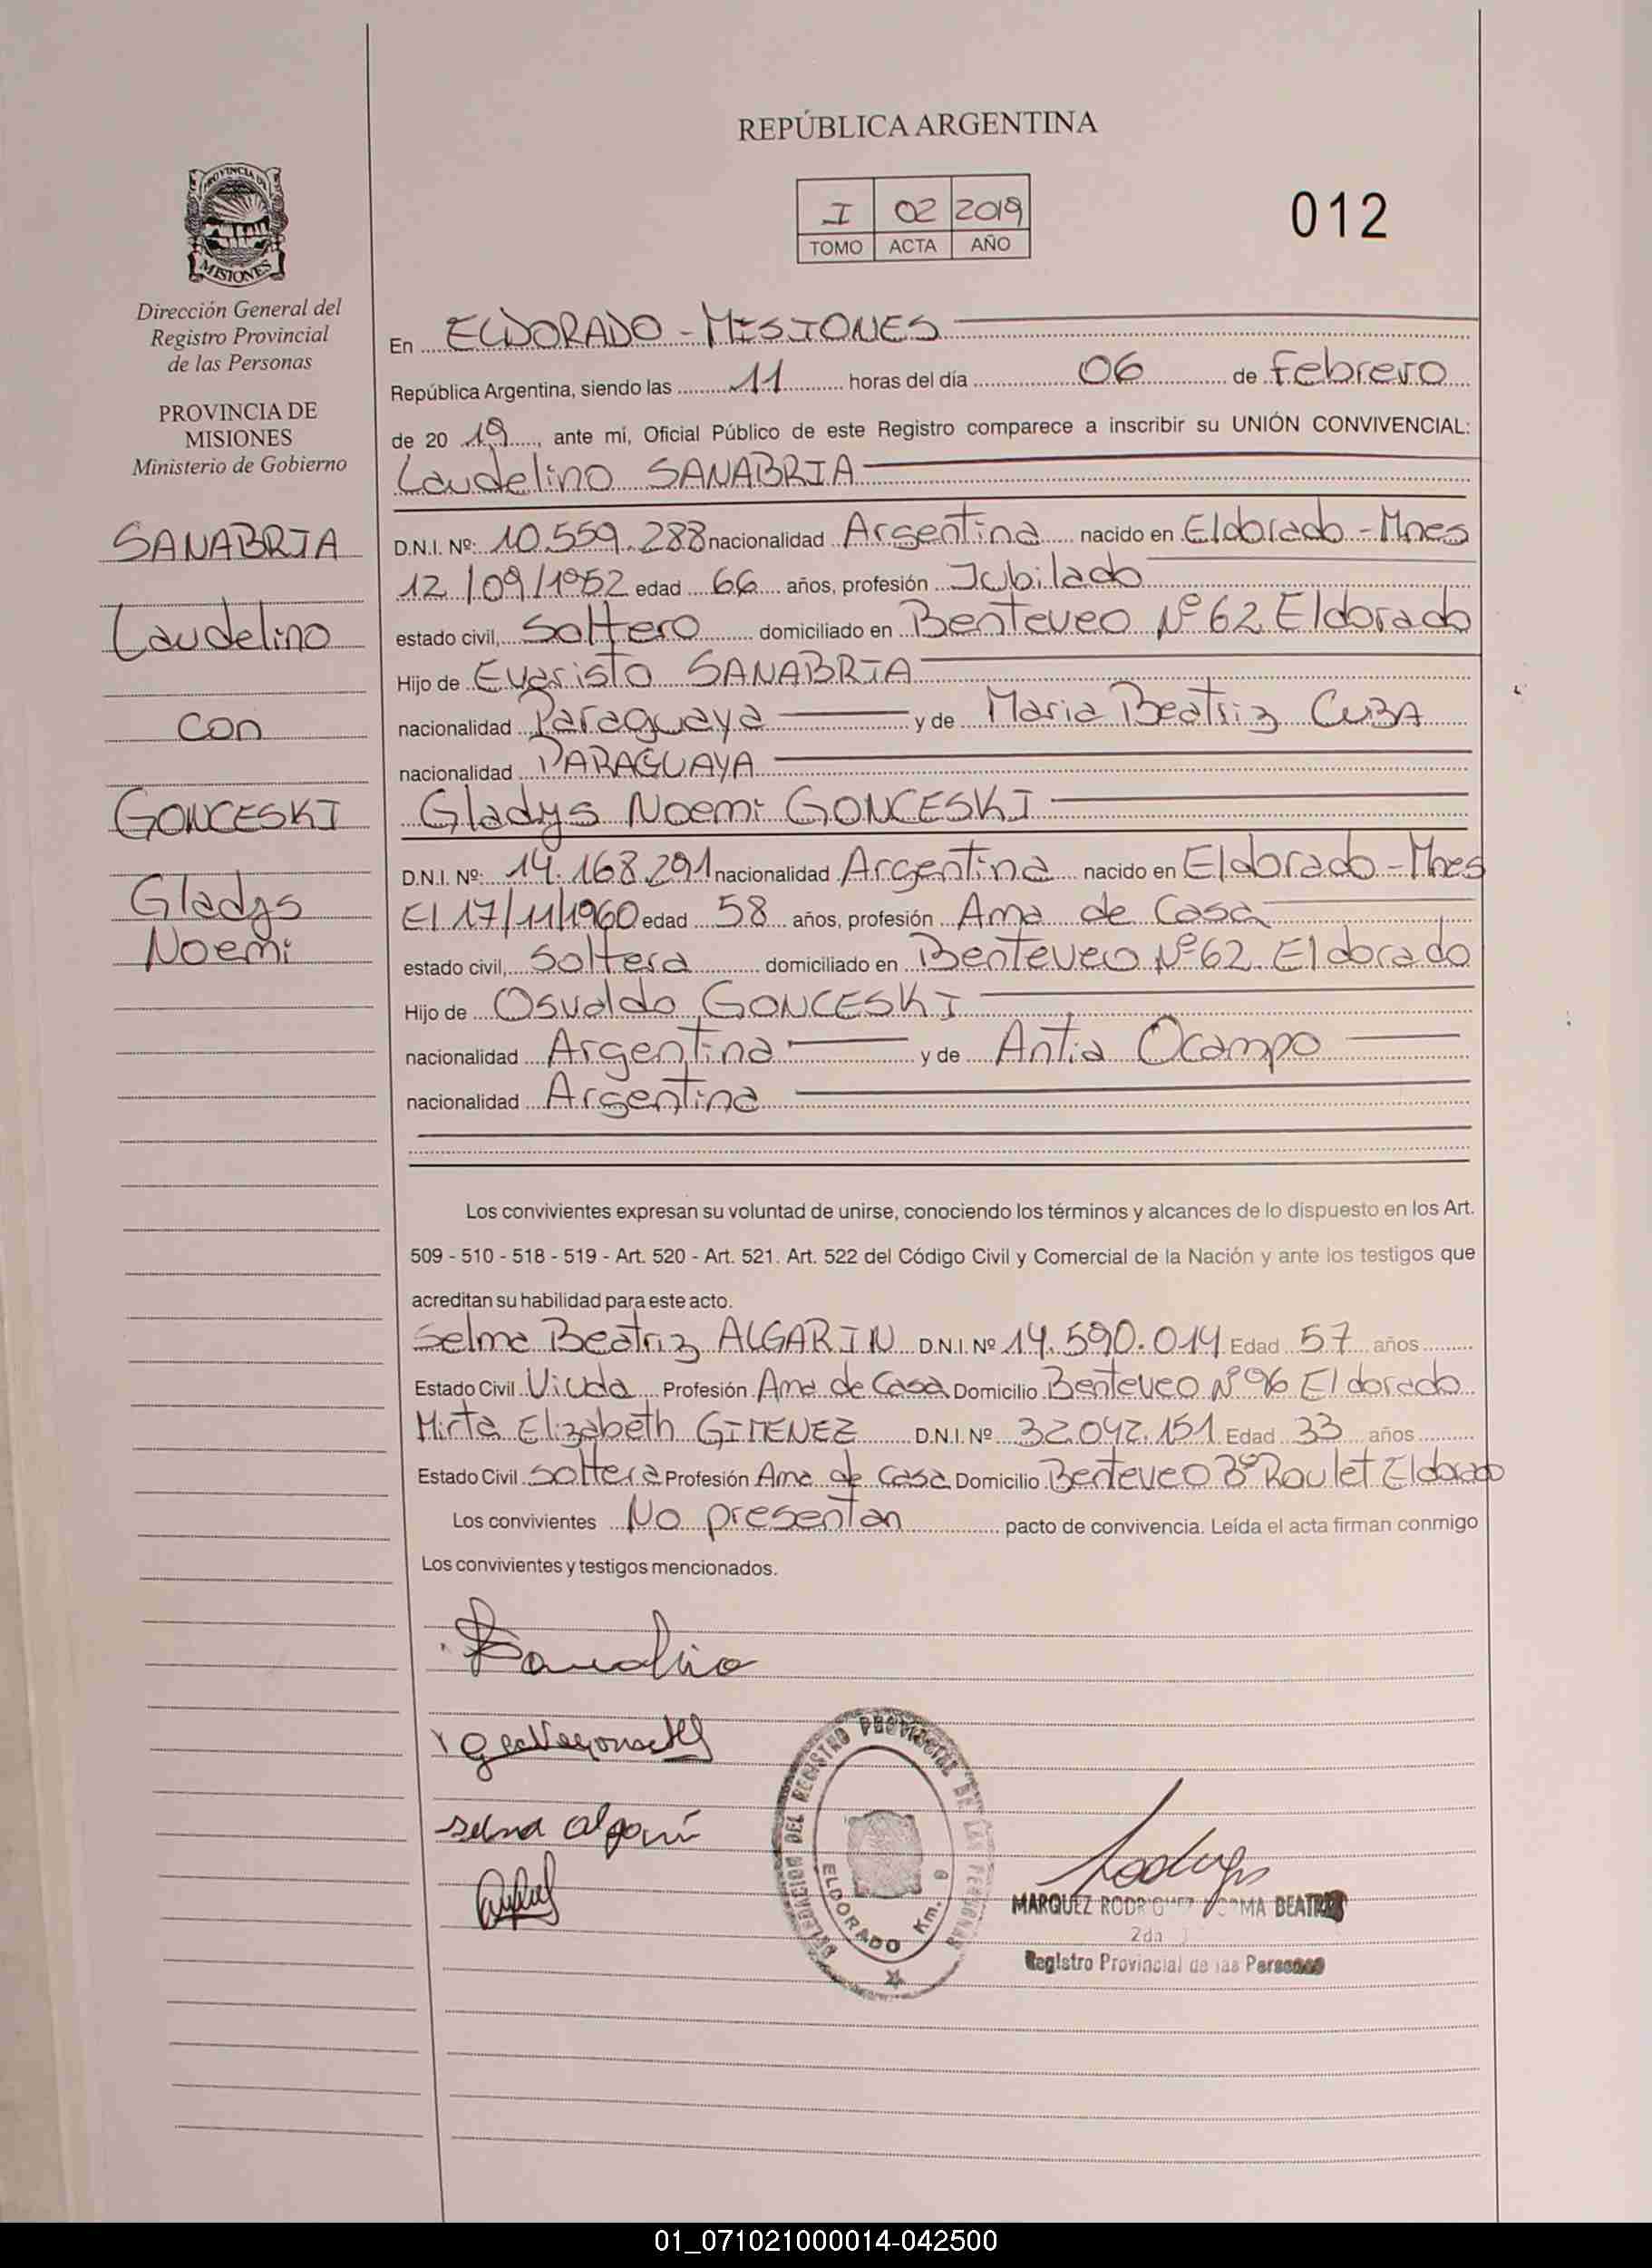 REPÚBLICA ARGENTINA
I 02 2019
TOMO ACTA AÑO
012
PROVINCIA DE
MISIONES
Dirección General del
Registro Provincial
de las Personas
PROVINCIA DE
MISIONES
Ministerio de Gobierno
SANABRIA
Laudelino
con
GONCESKI
Gladys
Noemi
En ELDORADO - MISIONES
República Argentina, siendo las 11 horas del día 06 de Febrero
de 20 19, ante mi, Oficial Público de este Registro comparece a inscribir su UNIÓN CONVIVENCIAL:
Laudelino SANABRIA
D.N.I. Nº: 10.559.288 nacionalidad Argentina nacido en Eldorado - Mnes
12/09/1952 edad 66 años, profesión Jubilado
estado civil, Soltero domiciliado en Benteveo Nº 62 Eldorado
Hijo de Evaristo SANABRIA
nacionalidad Paraguaya y de Maria Beatriz CUBA
nacionalidad PARAGUAYA
Gladys Noemi GONCESKI
D.N.I. Nº: 14.168.291 nacionalidad Argentina nacido en Eldorado - Mnes
El 17/11/1960 edad 58 años, profesión Ama de Casa
estado civil, Soltera domiciliado en Benteveo Nº 62 Eldorado
Hijo de Osvaldo GONCESKI
nacionalidad Argentina y de Antia Ocampo
nacionalidad Argentina
Los convivientes expresan su voluntad de unirse, conociendo los términos y alcances de lo dispuesto en los Art.
509 - 510 - 518 - 519 - Art. 520 - Art. 521. Art. 522 del Código Civil y Comercial de la Nación y ante los testigos que
acreditan su habilidad para este acto.
Selma Beatriz ALGARIN D.N.I. Nº 14.590.014 Edad 57 años
Estado Civil Viuda Profesión Ama de Casa Domicilio Benteveo Nº 96 Eldorado
Mirta Elizabeth GIMENEZ D.N.I. Nº 32.042.151 Edad 33 años
Estado Civil Soltera Profesión Ama de Casa Domicilio Benteveo Bº Roulet Eldorado
Los convivientes No presentan pacto de convivencia. Leída el acta firman conmigo
Los convivientes y testigos mencionados.
selma algarin
DELEGACION DEL REGISTRO PROVINCIAL DE LAS PERSONAS
ELDORADO Km. 9
MARQUEZ RODRIGUEZ NORMA BEATRIZ
2da
Registro Provincial de las Personas
01_071021000014-042500